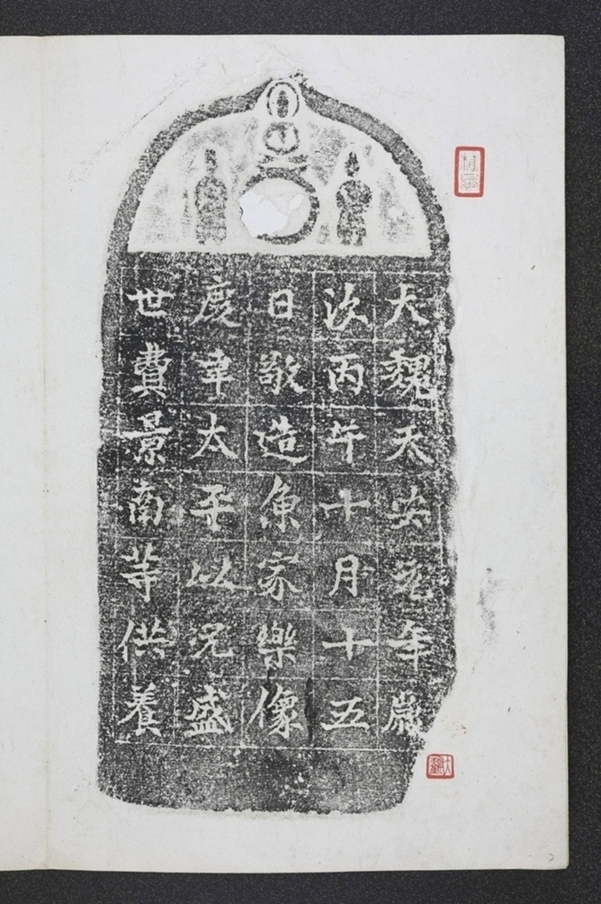 大魏天安元年歲
次丙午十月十五
日敬造魚家樂像
慶幸太平以況盛
世費景南等供養